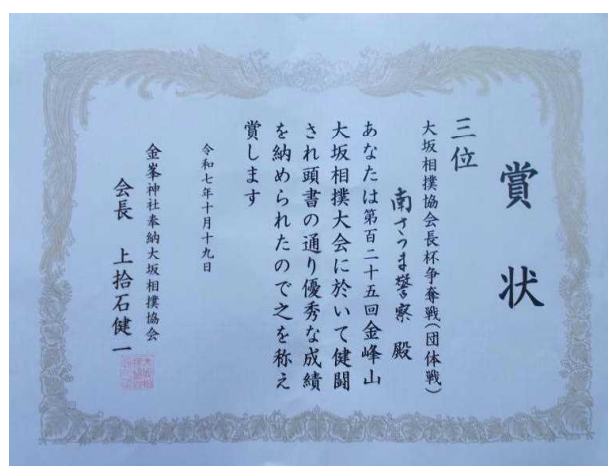 賞状
三位
大坂相撲協会長杯争奪戦(団体戦)
南さつま警察 殿
あなたは第百二十五回金峰山
大坂相撲大会に於いて健闘
され頭書の通り優秀な成績
を納められたので之を称え
賞します
令和七年十月十九日
金峯神社奉納大坂相撲協会
会長 上拾石健一